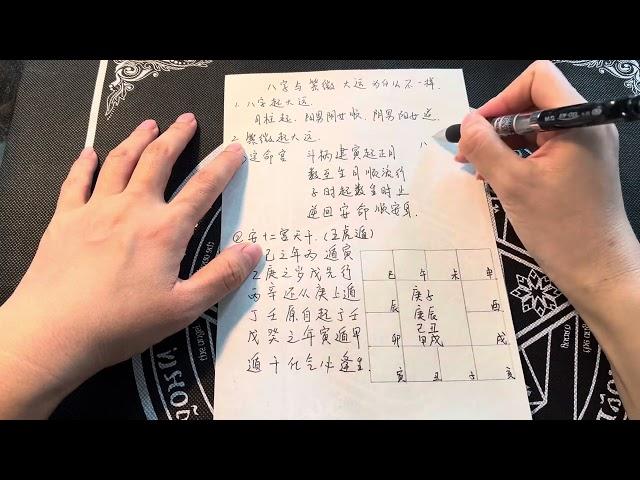 八字与紫微 大运 为什么不一样.
1. 八字起大运.
月柱起. 阳男阴女顺. 阴男阳女逆.
2. 紫微起大运.
定命宫 斗柄建寅起正月
数至生月顺流行
子时起数至时止
逆回安命顺安身.
②安十二宫天干.(五虎遁)
己之年丙遁寅
乙庚之岁戊先行
丙辛还从庚上遁
丁壬原自起于壬
戊癸之年寅遁甲
遁干化气必逢生.
巳 午 未 申
辰 庚子 酉
庚辰
己丑
卯 甲戌 戌
寅 丑 子 亥